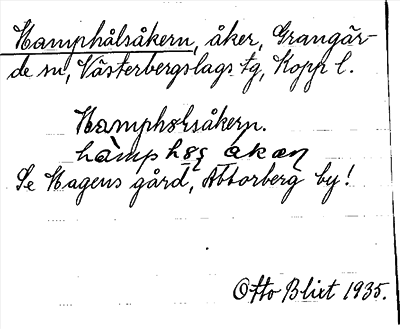 Hamphålsåkern, åker, Grangär-
de sn, Västerbergslags tg, Kopp l.
Hamphølsåkern.
Se Hagens gård, Abborberg by!
Otto Blixt 1935.